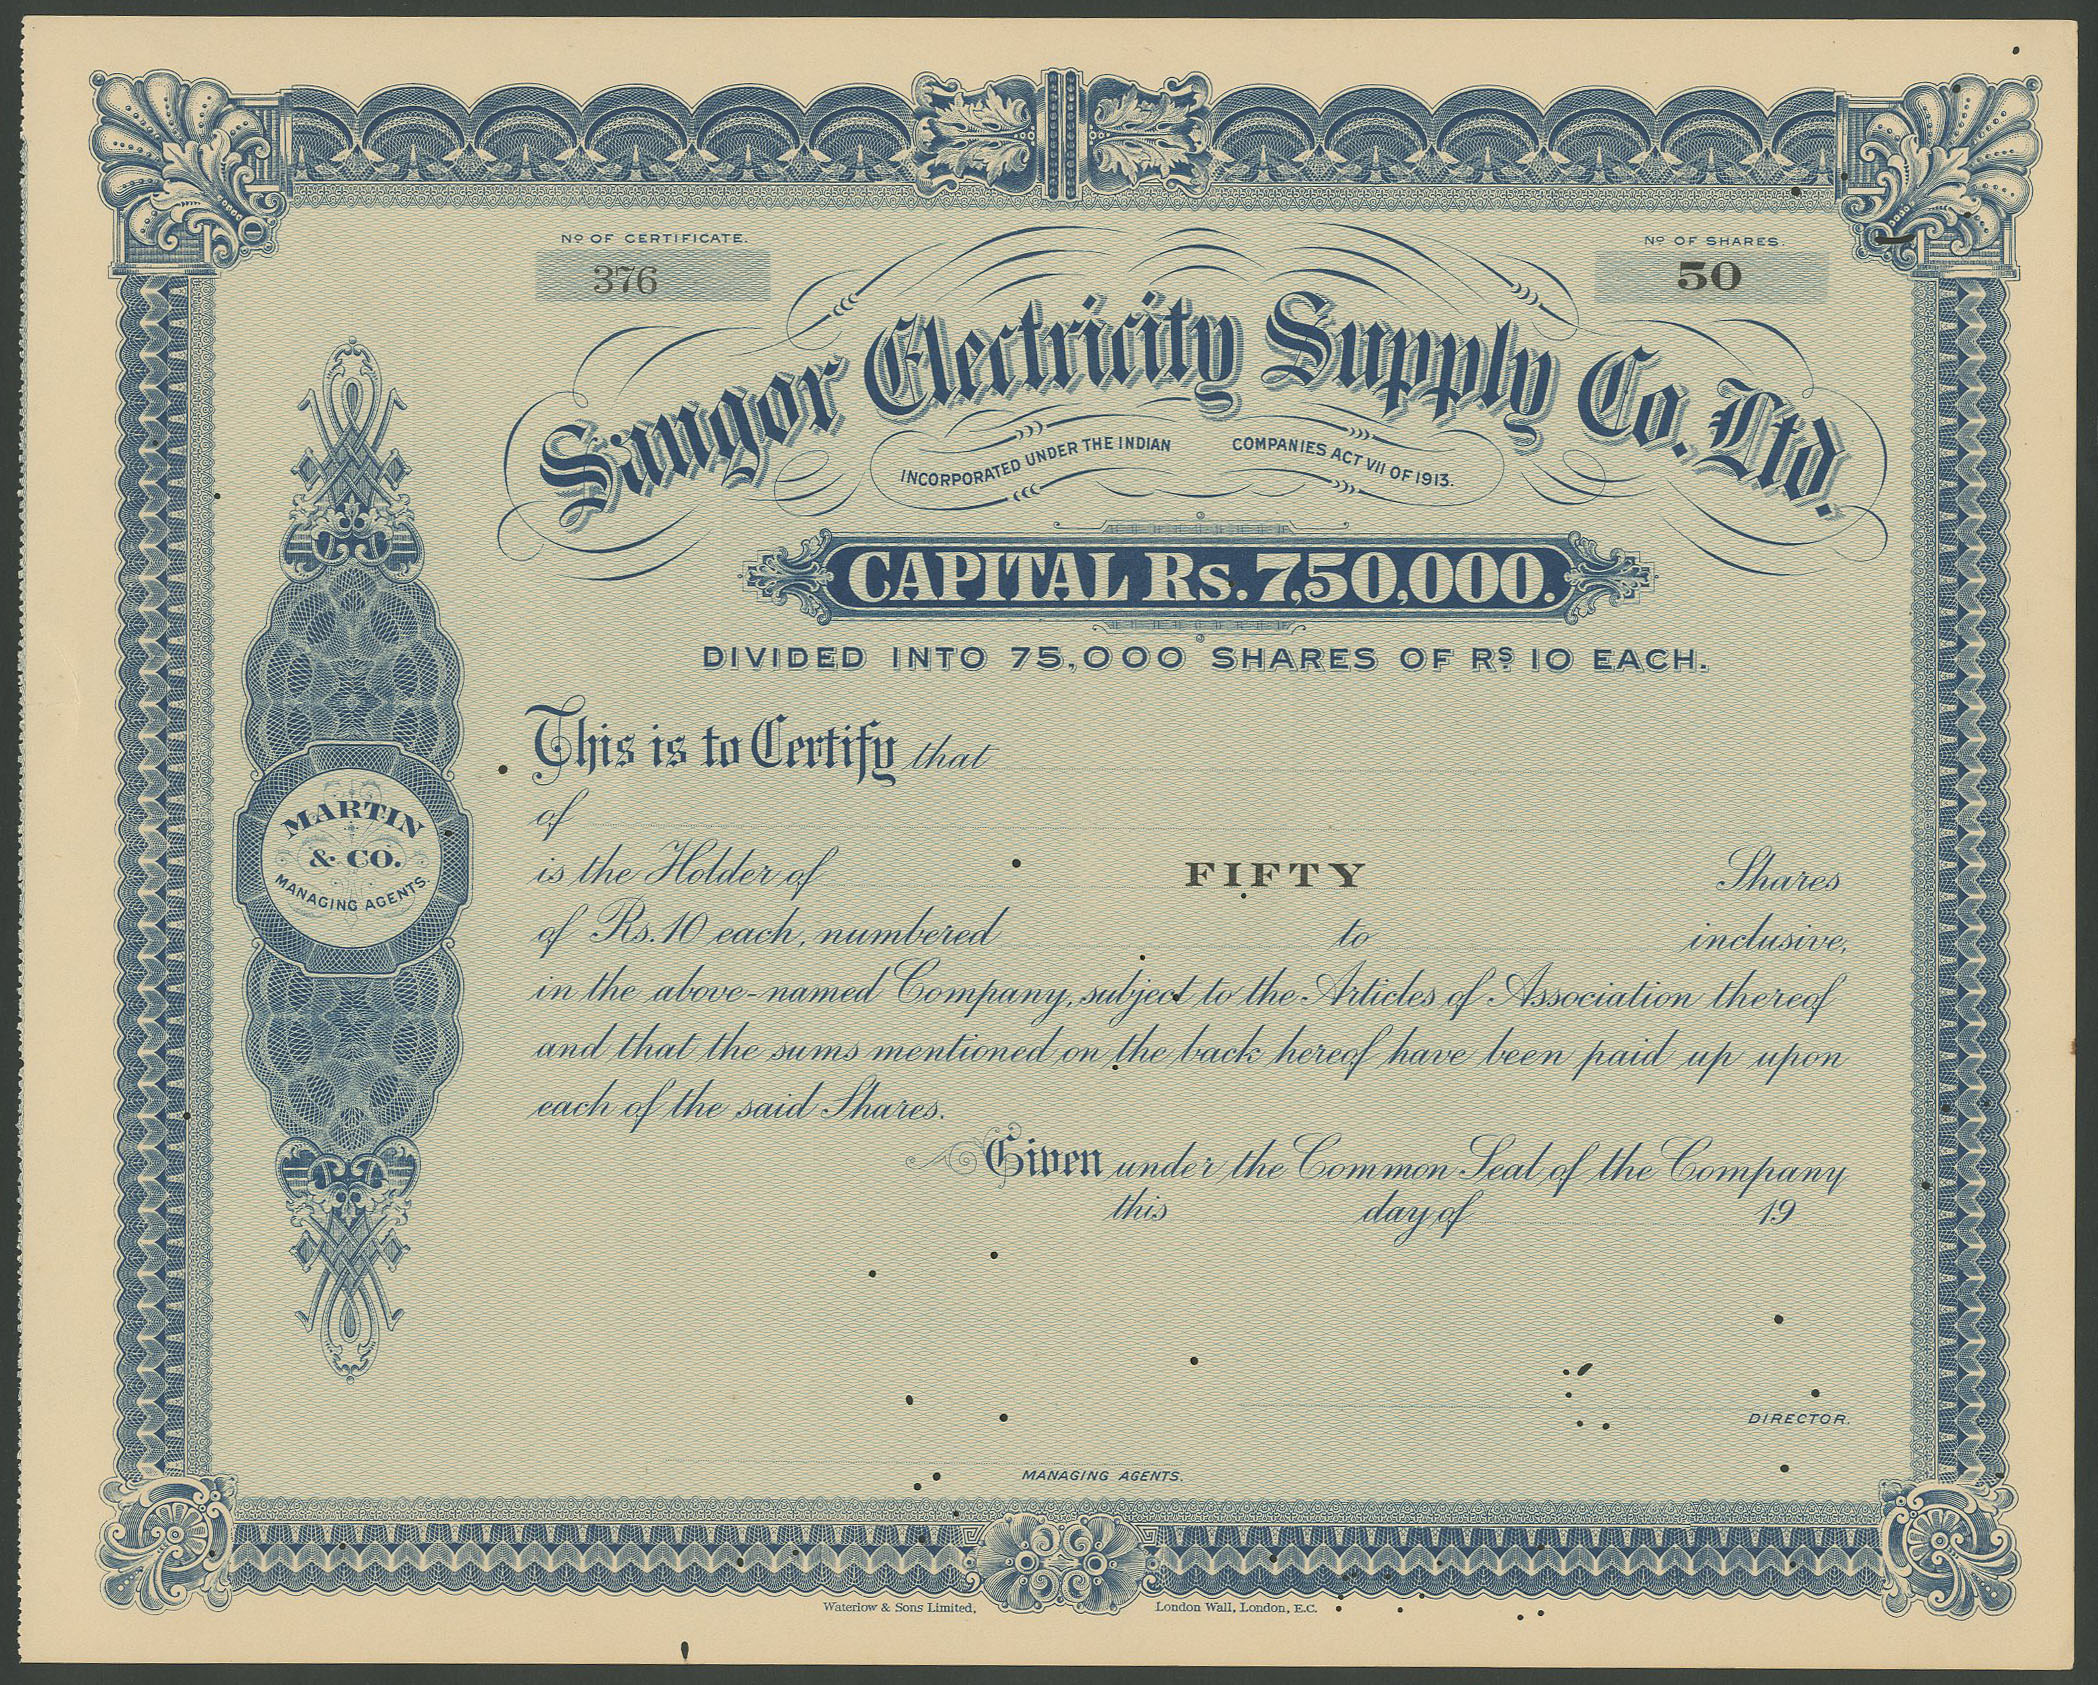 No OF CERTIFICATE.
376
No OF SHARES.
50
Saugor Electricity Supply Co. Ltd.
INCORPORATED UNDER THE INDIAN COMPANIES ACT VII OF 1913.
CAPITAL Rs. 7,50,000.
DIVIDED INTO 75,000 SHARES OF Rs 10 EACH.
This is to Certify that
of
is the Holder of FIFTY Shares
of Rs. 10 each, numbered to inclusive,
in the above-named Company, subject to the Articles of Association thereof
and that the sums mentioned on the back hereof have been paid up upon
each of the said Shares.
Given under the Common Seal of the Company
this day of 19
MARTIN
& CO.
MANAGING AGENTS
DIRECTOR.
MANAGING AGENTS.
Waterlow & Sons Limited, London Wall, London, E.C.